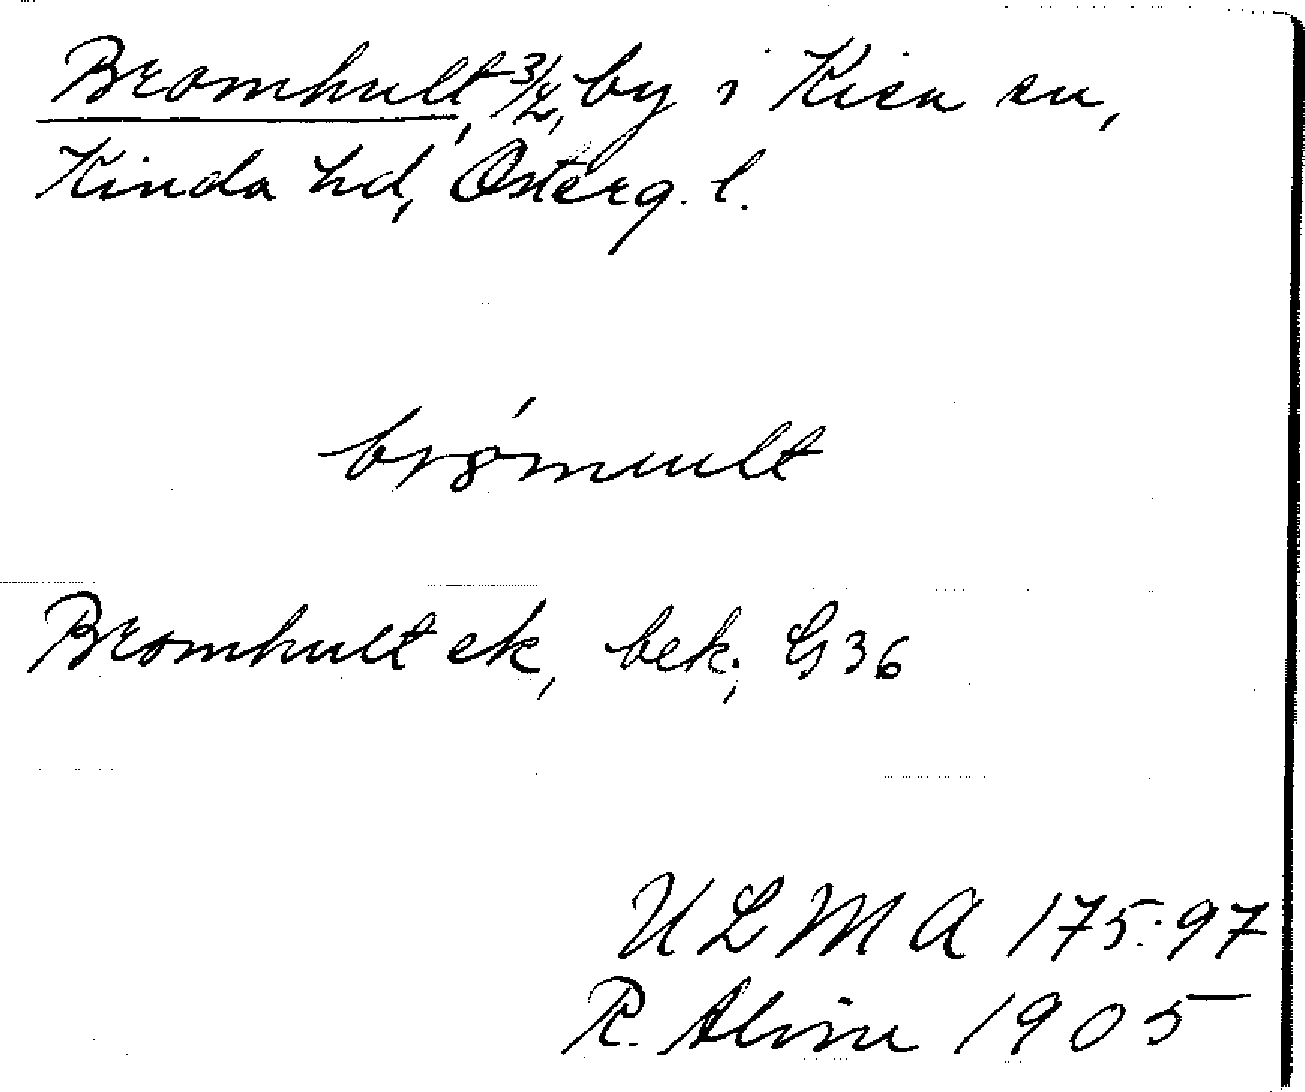 Bromhult, 3/4, by i Kisa sn,
Kinda hd, Österg. l.
brǿmult
Bromhult ek, bek; G 36
ULMA 175:97
R. Alvin 1905